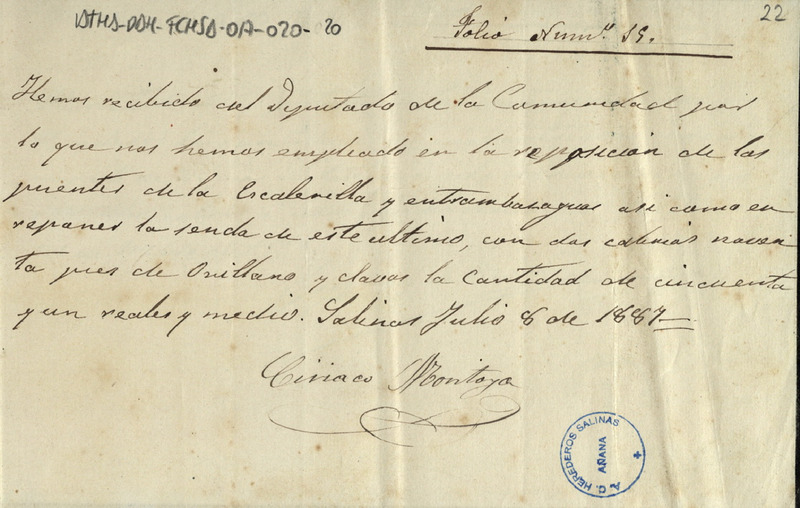 ATHA-DAH-FCHSA-OA-020-20
22
Folio Numº 19.
Hemos recibido del Diputado de la Comunidad por
lo que nos hemos empleado en la reposicion de los
puentes de la Escalerilla y entrambasaguas asi como en
reponer la senda de este ultimo, con dos cabrios noven
ta pies de Orillano y clavos la Cantidad de cincuenta
y un reales y medio. Salinas Julio 8 de 1887
Ciriaco Montoya
A. C. HEREDEROS SALINAS
AÑANA